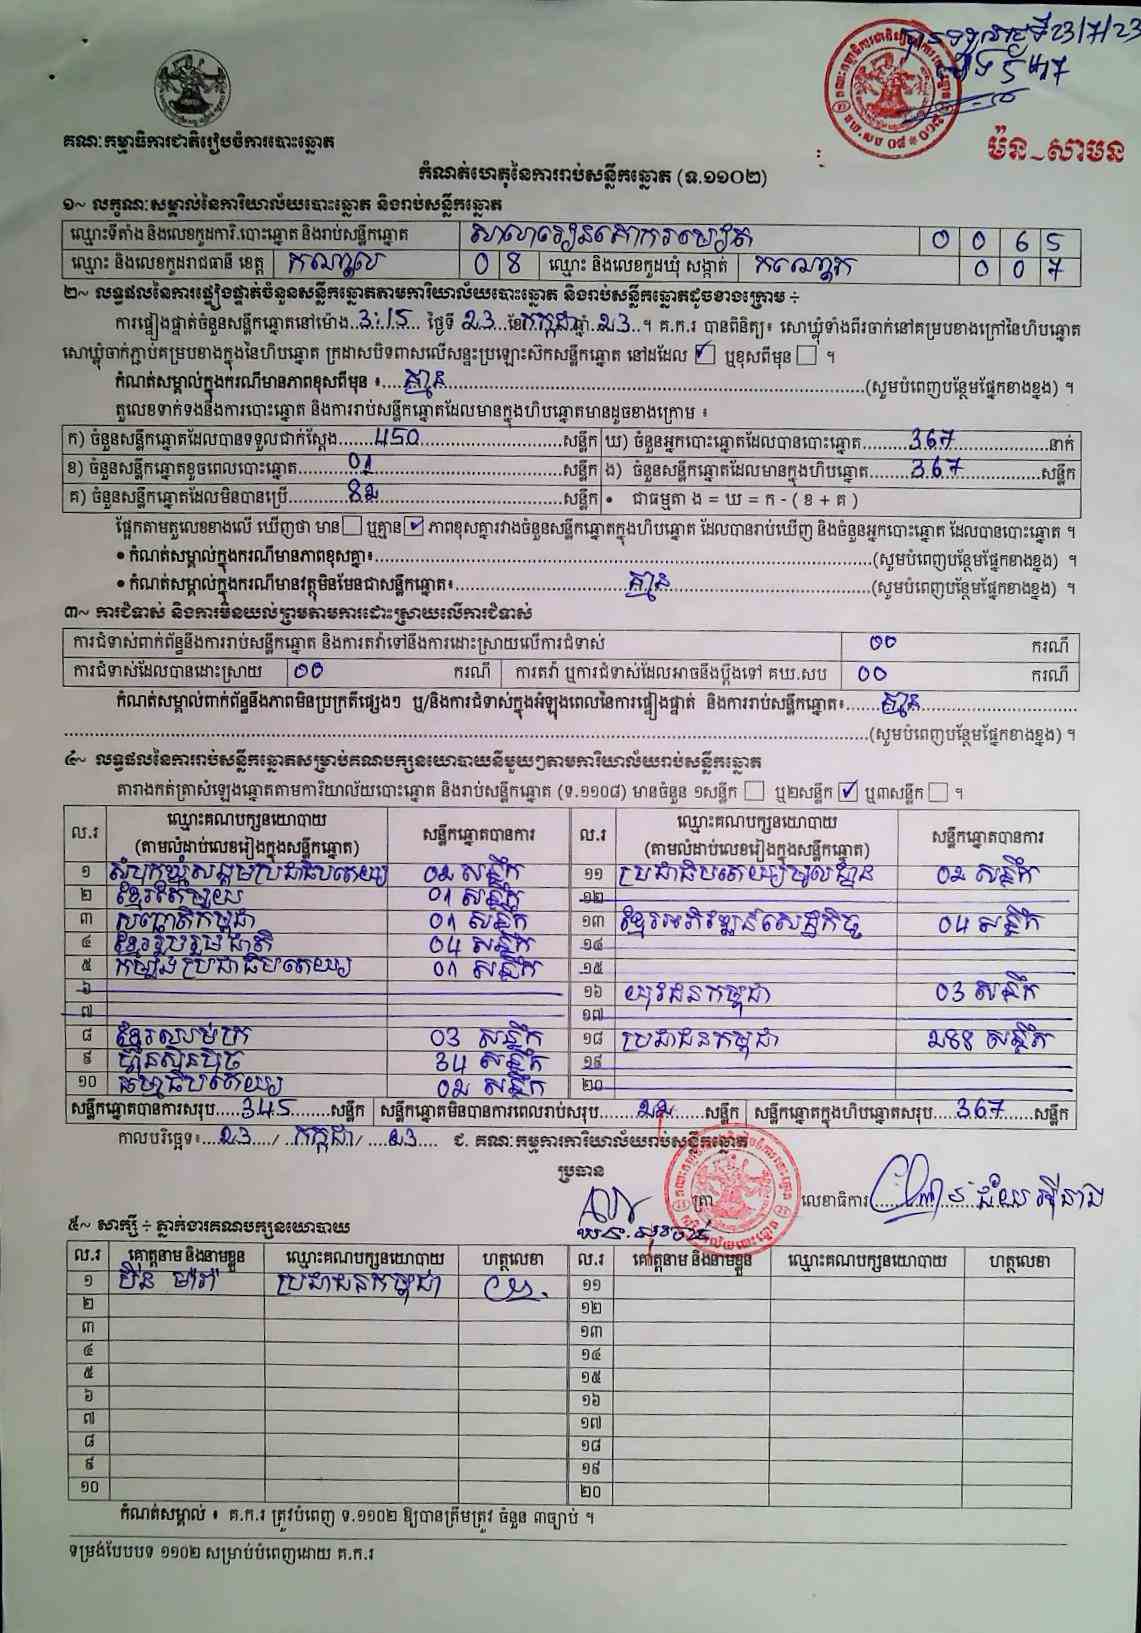 បានទទួលថ្ងៃទី 23/7/23
ម៉ន-សាមន
គណៈកម្មាធិការជាតិរៀបចំការបោះឆ្នោត
កំណត់ហេតុនៃការរាប់សន្លឹកឆ្នោត (ទ.១១០២)
១~ លក្ខណៈសម្គាល់នៃការិយាល័យបោះឆ្នោត និងរាប់សន្លឹកឆ្នោត
ឈ្មោះទីតាំង និងលេខកូដការិ.បោះឆ្នោត និងរាប់សន្លឹកឆ្នោត សាលារៀនគោករមៀត 0 0 6 5
ឈ្មោះ និងលេខកូដរាជធានី ខេត្ត កណ្តាល 0 8 ឈ្មោះ និងលេខកូដឃុំ សង្កាត់ 0 0 7
២~ លទ្ធផលនៃការផ្ទៀងផ្ទាត់ចំនួនសន្លឹកឆ្នោតតាមការិយាល័យបោះឆ្នោត និងរាប់សន្លឹកឆ្នោតដូចខាងក្រោម ÷
ការផ្ទៀងផ្ទាត់ចំនួនសន្លឹកឆ្នោតនៅម៉ោង..3:15 ថ្ងៃទី 23 ខែកក្កដាឆ្នាំ.23..។ គ.ក.រ បានពិនិត្យ៖ សោឃ្លុំទាំងពីរចាក់នៅគម្របខាងក្រៅនៃហិបឆ្នោត
សោឃ្លុំចាក់ភ្ជាប់គម្របខាងក្នុងនៃហិបឆ្នោត ក្រដាសបិទពាសលើសន្ទះប្រឡោះស៊កសន្លឹកឆ្នោត នៅដដែល ☑ ឬខុសពីមុន ☐ ។
កំណត់សម្គាល់ក្នុងករណីមានភាពខុសពីមុន ៖....គ្មាន....(សូមបំពេញបន្ថែមផ្នែកខាងខ្នង) ។
តួលេខទាក់ទងនឹងការបោះឆ្នោត និងការរាប់សន្លឹកឆ្នោតដែលមានក្នុងហិបឆ្នោតមានដូចខាងក្រោម ៖
ក) ចំនួនសន្លឹកឆ្នោតដែលបានទទួលជាក់ស្តែង.......450.......សន្លឹក ឃ) ចំនួនអ្នកបោះឆ្នោតដែលបានបោះឆ្នោត.......367.......នាក់
ខ) ចំនួនសន្លឹកឆ្នោតខូចពេលបោះឆ្នោត.......01.......សន្លឹក ង) ចំនួនសន្លឹកឆ្នោតដែលមានក្នុងហិបឆ្នោត.......367.......សន្លឹក
គ) ចំនួនសន្លឹកឆ្នោតដែលមិនបានប្រើ.......82.......សន្លឹក • ជាធម្មតា ង = ឃ = ក - ( ខ + គ )
ផ្អែកតាមតួលេខខាងលើ ឃើញថា មាន☐ ឬគ្មាន☑ ភាពខុសគ្នារវាងចំនួនសន្លឹកឆ្នោតក្នុងហិបឆ្នោត ដែលបានរាប់ឃើញ និងចំនួនអ្នកបោះឆ្នោត ដែលបានបោះឆ្នោត ។
• កំណត់សម្គាល់ក្នុងករណីមានភាពខុសគ្នា៖.......(សូមបំពេញបន្ថែមផ្នែកខាងខ្នង) ។
• កំណត់សម្គាល់ក្នុងករណីមានវត្ថុមិនមែនជាសន្លឹកឆ្នោត៖.......គ្មាន.......(សូមបំពេញបន្ថែមផ្នែកខាងខ្នង) ។
៣~ ការជំទាស់ និងការមិនយល់ព្រមតាមការដោះស្រាយលើការជំទាស់
ការជំទាស់ពាក់ព័ន្ធនឹងការរាប់សន្លឹកឆ្នោត និងការតវ៉ាទៅនឹងការដោះស្រាយលើការជំទាស់ 00 ករណី
ការជំទាស់ដែលបានដោះស្រាយ 00 ករណី ការតវ៉ា ឬការជំទាស់ដែលអាចនឹងប្តឹងទៅ គឃ.សប 00 ករណី
កំណត់សម្គាល់ពាក់ព័ន្ធនឹងភាពមិនប្រក្រតីផ្សេងៗ ឬ/និងការជំទាស់ក្នុងអំឡុងពេលនៃការផ្ទៀងផ្ទាត់ និងការរាប់សន្លឹកឆ្នោត៖.......គ្មាន.......
.......(សូមបំពេញបន្ថែមផ្នែកខាងខ្នង) ។
៤~ លទ្ធផលនៃការរាប់សន្លឹកឆ្នោតសម្រាប់គណបក្សនយោបាយនីមួយៗតាមការិយាល័យរាប់សន្លឹកឆ្នោត
តារាងកត់ត្រាសំឡេងឆ្នោតតាមការិយាល័យបោះឆ្នោត និងរាប់សន្លឹកឆ្នោត (ទ.១១០៨) មានចំនួន ១សន្លឹក ☐ ឬ២សន្លឹក ☑ ឬ៣សន្លឹក ☐ ។
ល.រ ឈ្មោះគណបក្សនយោបាយ (តាមលំដាប់លេខរៀងក្នុងសន្លឹកឆ្នោត) សន្លឹកឆ្នោតបានការ ល.រ ឈ្មោះគណបក្សនយោបាយ (តាមលំដាប់លេខរៀងក្នុងសន្លឹកឆ្នោត) សន្លឹកឆ្នោតបានការ
១ សំបុកឃ្មុំសង្គមប្រជាធិបតេយ្យ 02 សន្លឹក ១១ ប្រជាធិបតេយ្យមូលដ្ឋាន 02 សន្លឹក
២ ខ្មែរតែមួយ 01 សន្លឹក ១២
៣ សញ្ជាតិកម្ពុជា 01 សន្លឹក ១៣ ខ្មែរអភិវឌ្ឍន៍សេដ្ឋកិច្ច 04 សន្លឹក
៤ ខ្មែររួបរួមជាតិ 04 សន្លឹក ១៤
៥ កម្លាំងប្រជាធិបតេយ្យ 01 សន្លឹក ១៥
៦ ១៦ យុវជនកម្ពុជា 03 សន្លឹក
៧ ១៧
៨ ខ្មែរឈប់ក្រ 03 សន្លឹក ១៨ ប្រជាជនកម្ពុជា 288 សន្លឹក
៩ ហ៊្វុនស៊ិនប៉ិច 34 សន្លឹក ១៩
១០ ធម្មាធិបតេយ្យ 02 សន្លឹក ២០
សន្លឹកឆ្នោតបានការសរុប.....345.....សន្លឹក សន្លឹកឆ្នោតមិនបានការពេលរាប់សរុប.....22.....សន្លឹក សន្លឹកឆ្នោតក្នុងហិបឆ្នោតសរុប....367.....សន្លឹក
កាលបរិច្ឆេទ៖...23.../..កក្កដា/....23.... ជ. គណៈកម្មការការិយាល័យរាប់សន្លឹកឆ្នោត
ប្រធាន
ត្រា លេខាធិការ
៥~ សាក្សី ÷ ភ្នាក់ងារគណបក្សនយោបាយ
ល.រ គោត្តនាម និងនាមខ្លួន ឈ្មោះគណបក្សនយោបាយ ហត្ថលេខា ល.រ គោត្តនាម និងនាមខ្លួន ឈ្មោះគណបក្សនយោបាយ ហត្ថលេខា
១ ប្រជាជនកម្ពុជា ១១
២ ១២
៣ ១៣
៤ ១៤
៥ ១៥
៦ ១៦
៧ ១៧
៨ ១៨
៩ ១៩
១០ ២០
កំណត់សម្គាល់ ៖ គ.ក.រ ត្រូវបំពេញ ទ.១១០២ ឱ្យបានត្រឹមត្រូវ ចំនួន ៣ច្បាប់ ។
ទម្រង់បែបបទ ១១០២ សម្រាប់បំពេញដោយ គ.ក.រ